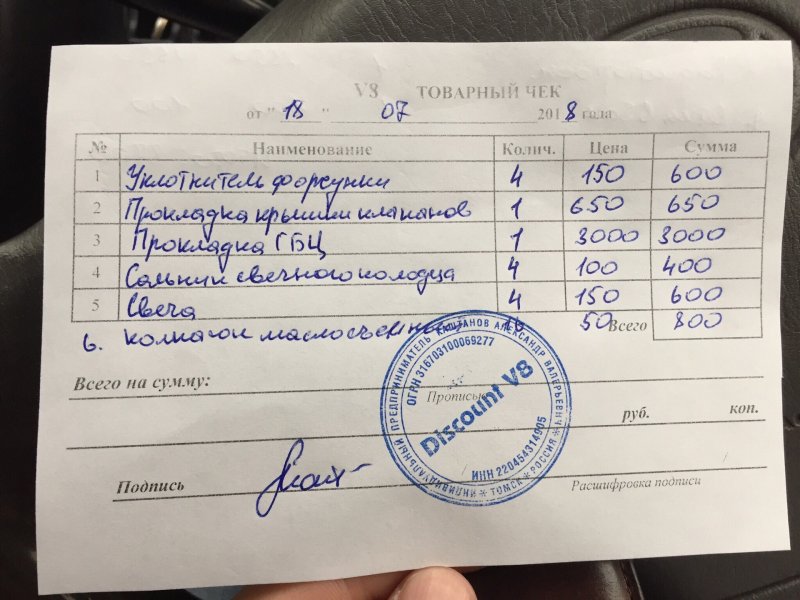 V8 ТОВАРНЫЙ ЧЕК
от "18" 07 2018 года
№ Наименование Колич. Цена Сумма
1 Уплотнитель форсунки 4 150 600
2 Прокладка крышки клапанов 1 650 650
3 Прокладка ГБЦ 1 3000 3000
4 Сальник свечного колодца 4 100 400
5 Свеча 4 150 600
6. колпачок маслосъемный 16 50 Всего 800
Всего на сумму:
Прописью
руб. коп.
Подпись
Расшифровка подписи
ИНДИВИДУАЛЬНЫЙ ПРЕДПРИНИМАТЕЛЬ КАШТАНОВ АЛЕКСАНДР ВАЛЕРЬЕВИЧ * РОССИЯ * ТОМСК *
ОГРН 316703100069277
Discount V8
ИНН 220454314905